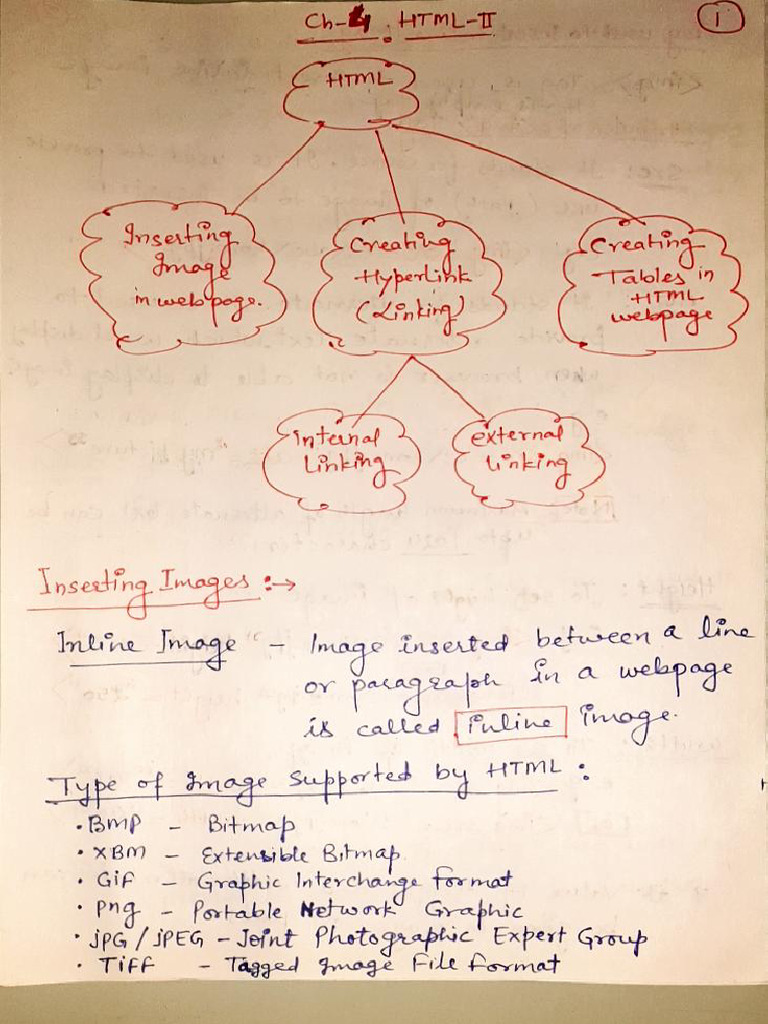 Ch-4 : HTML-II
1
HTML
Inserting
Image
in webpage.
Creating
Hyperlink
(Linking)
Creating
Tables in
HTML
webpage
internal
Linking
external
linking
Inserting Images :→
Inline Image - Image inserted between a line
or paragraph in a webpage
is called inline image.
Type of Image Supported by HTML :
• BMP - Bitmap
• XBM - Extensible Bitmap
• Gif - Graphic Interchange format
• png - Portable Network Graphic
• JPG / JPEG - Joint Photographic Expert Group
• Tiff - Tagged Image File Format